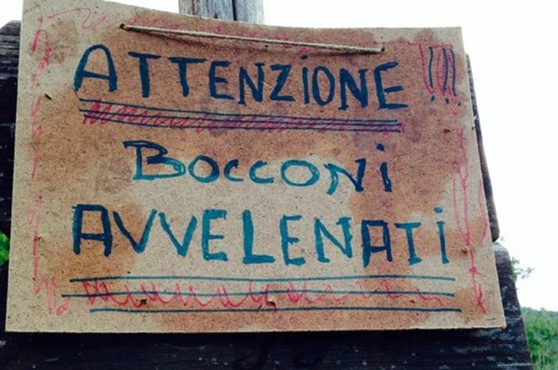 ATTENZIONE !!!
BOCCONi
AVVELENATi